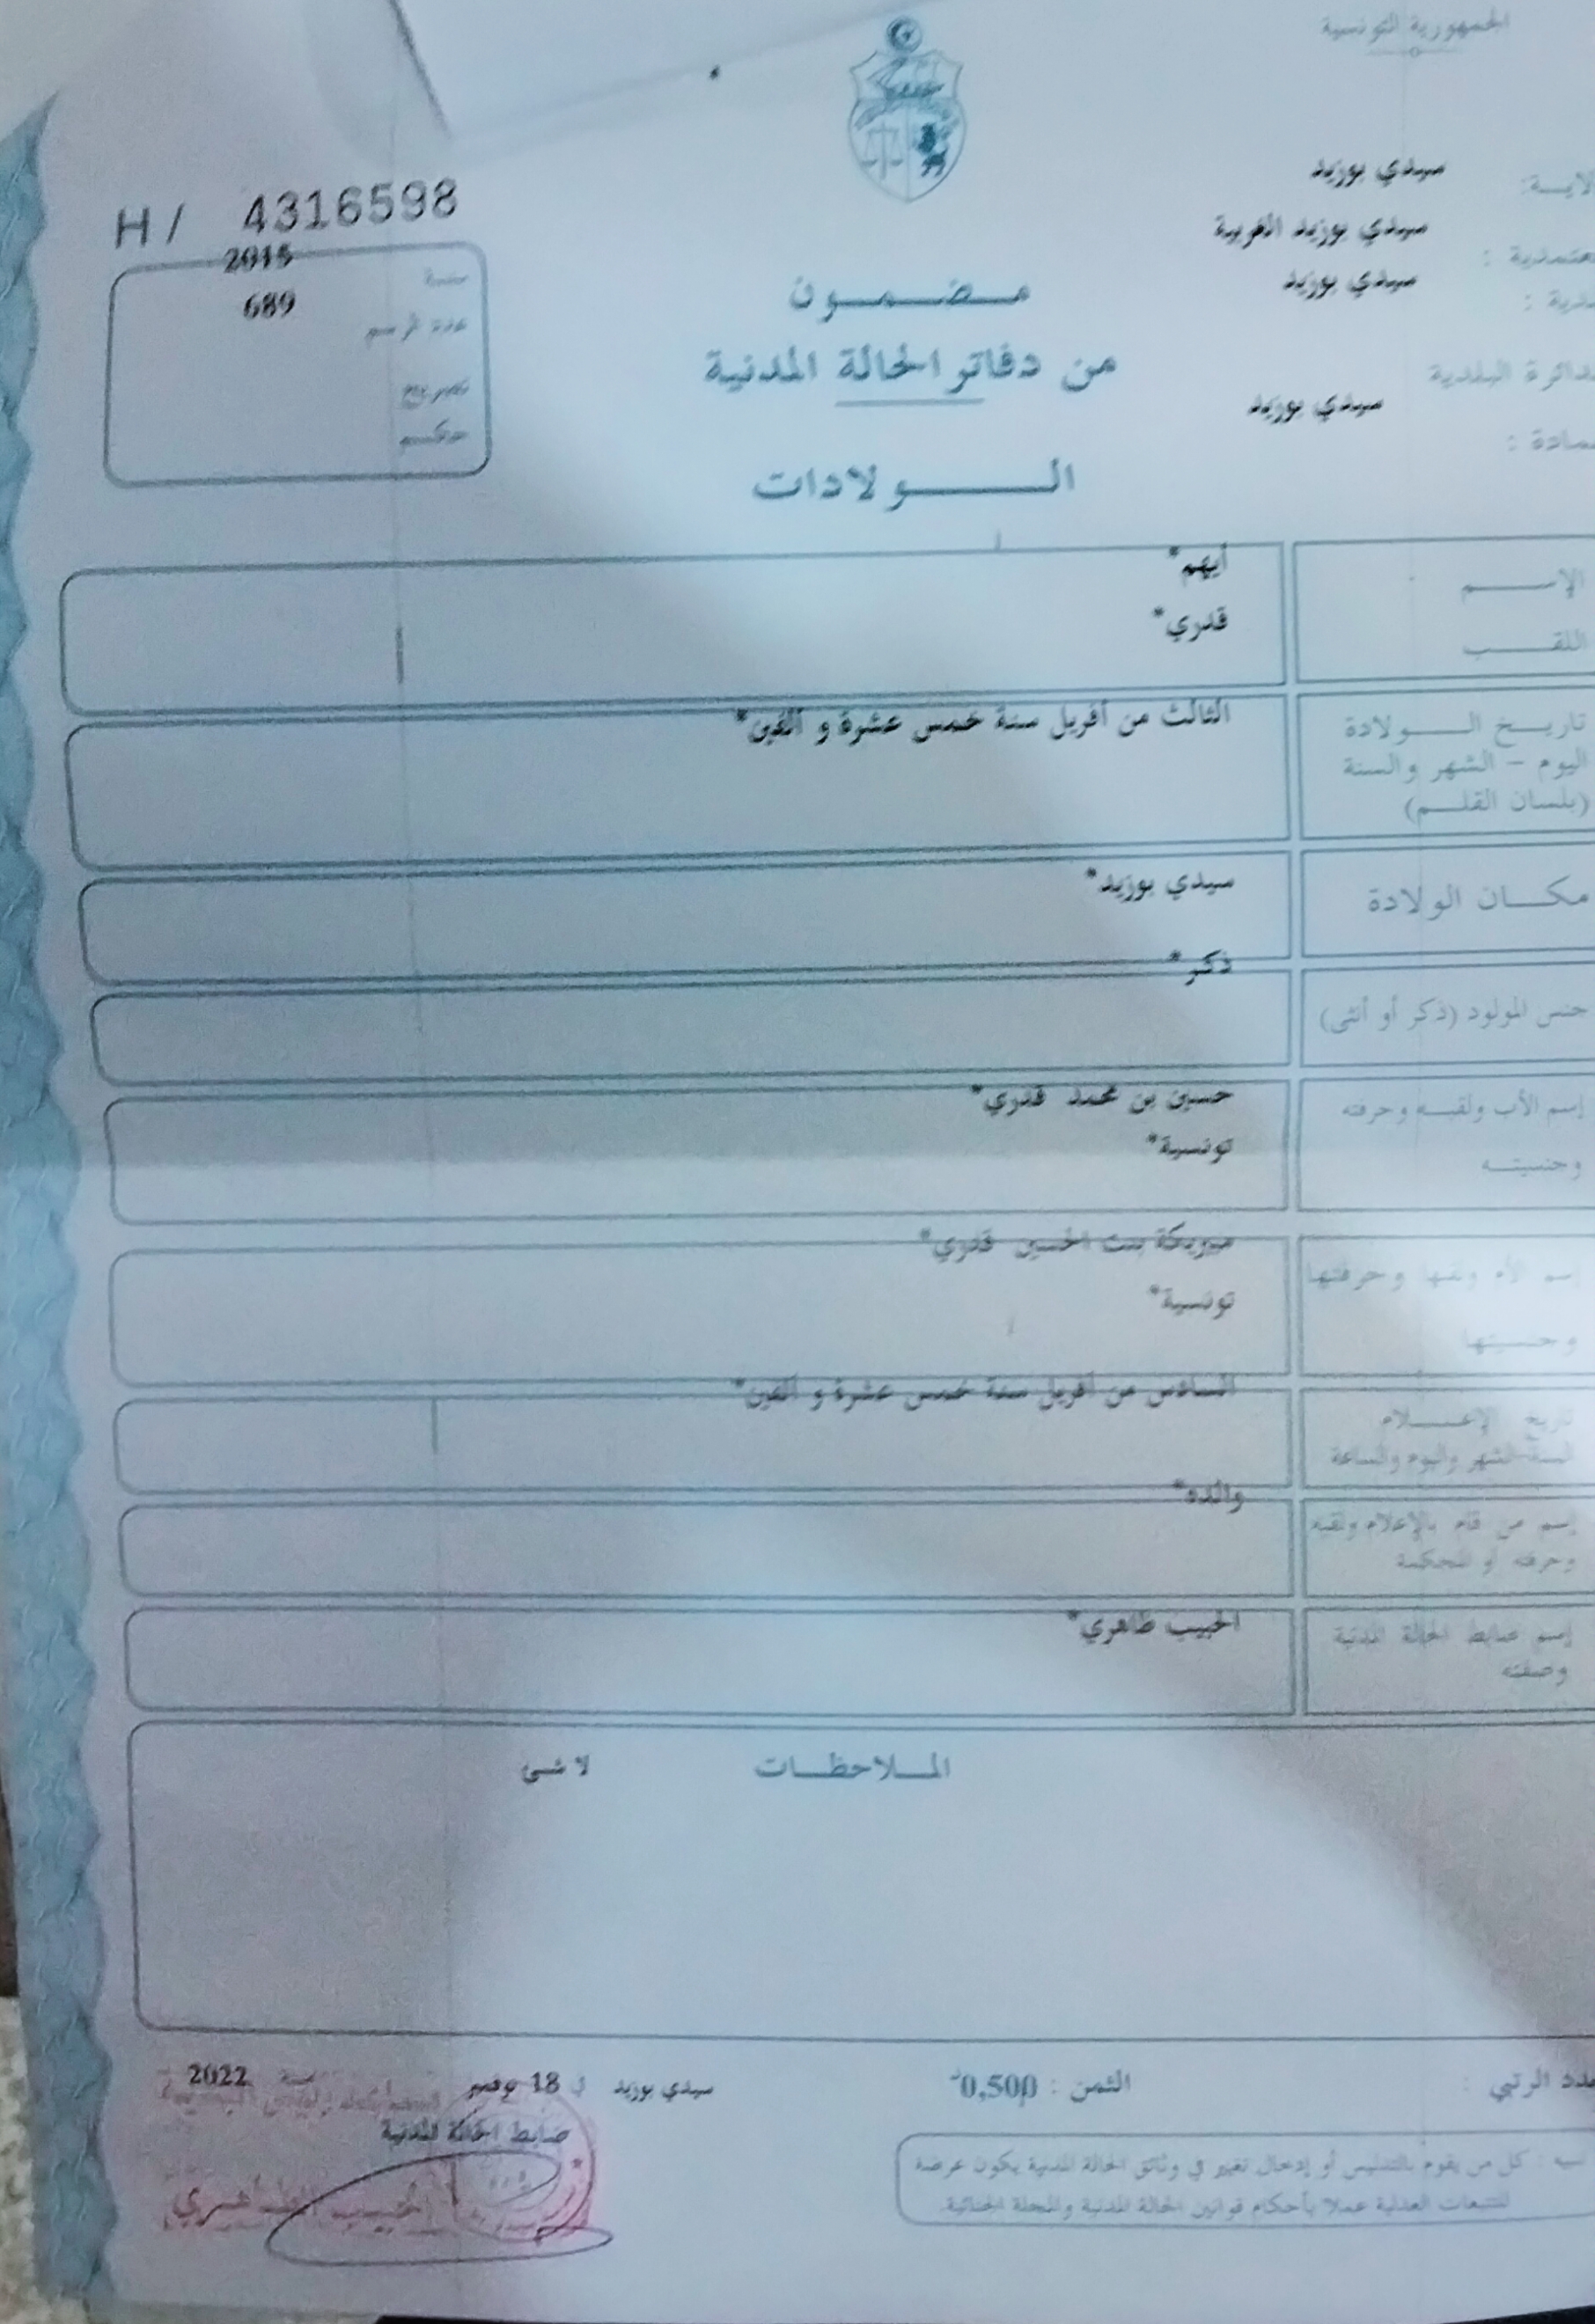 الجمهورية التونسية
سيدي بوزيد
سيدي بوزيد الغربية
سيدي بوزيد
دائرة البلدية
سيدي بوزيد
H / 4316598
سنة 2015
عدد الرسم 689
تصريح
حكم
مضمون
من دفاتر الحالة المدنية
الولادات
الإسم أيهم*
اللقب قدري*
تاريخ الولادة
اليوم - الشهر والسنة
(بلسان القلم)
الثالث من أفريل سنة خمس عشرة و ألفين*
مكان الولادة سيدي بوزيد*
جنس المولود (ذكر أو أنثى) ذكر*
إسم الأب ولقبه وحرفته
وجنسيته
حسين بن محمد قدري*
تونسية*
إسم الأم ولقبها وحرفتها
وجنسيتها
بنت الحسين قدري*
تونسية*
تاريخ الإعلام
السنة الشهر واليوم والساعة
السادس من أفريل سنة خمس عشرة و ألفين*
إسم من قام بالإعلام ولقبه
وحرفته أو المحكمة
والده*
إسم ضابط الحالة المدنية
وصفته
الحبيب طاهري*
الملاحظات لا شئ
الثمن : 0,500
سيدي بوزيد في 18 نوفمبر سنة 2022
ضابط الحالة المدنية
الحبيب الطاهري
تنبيه : كل من يقوم بالتدليس أو إدخال تغيير في وثائق الحالة المدنية يكون عرضة
للتتبعات العدلية عملا بأحكام قوانين الحالة المدنية والمجلة الجنائية.